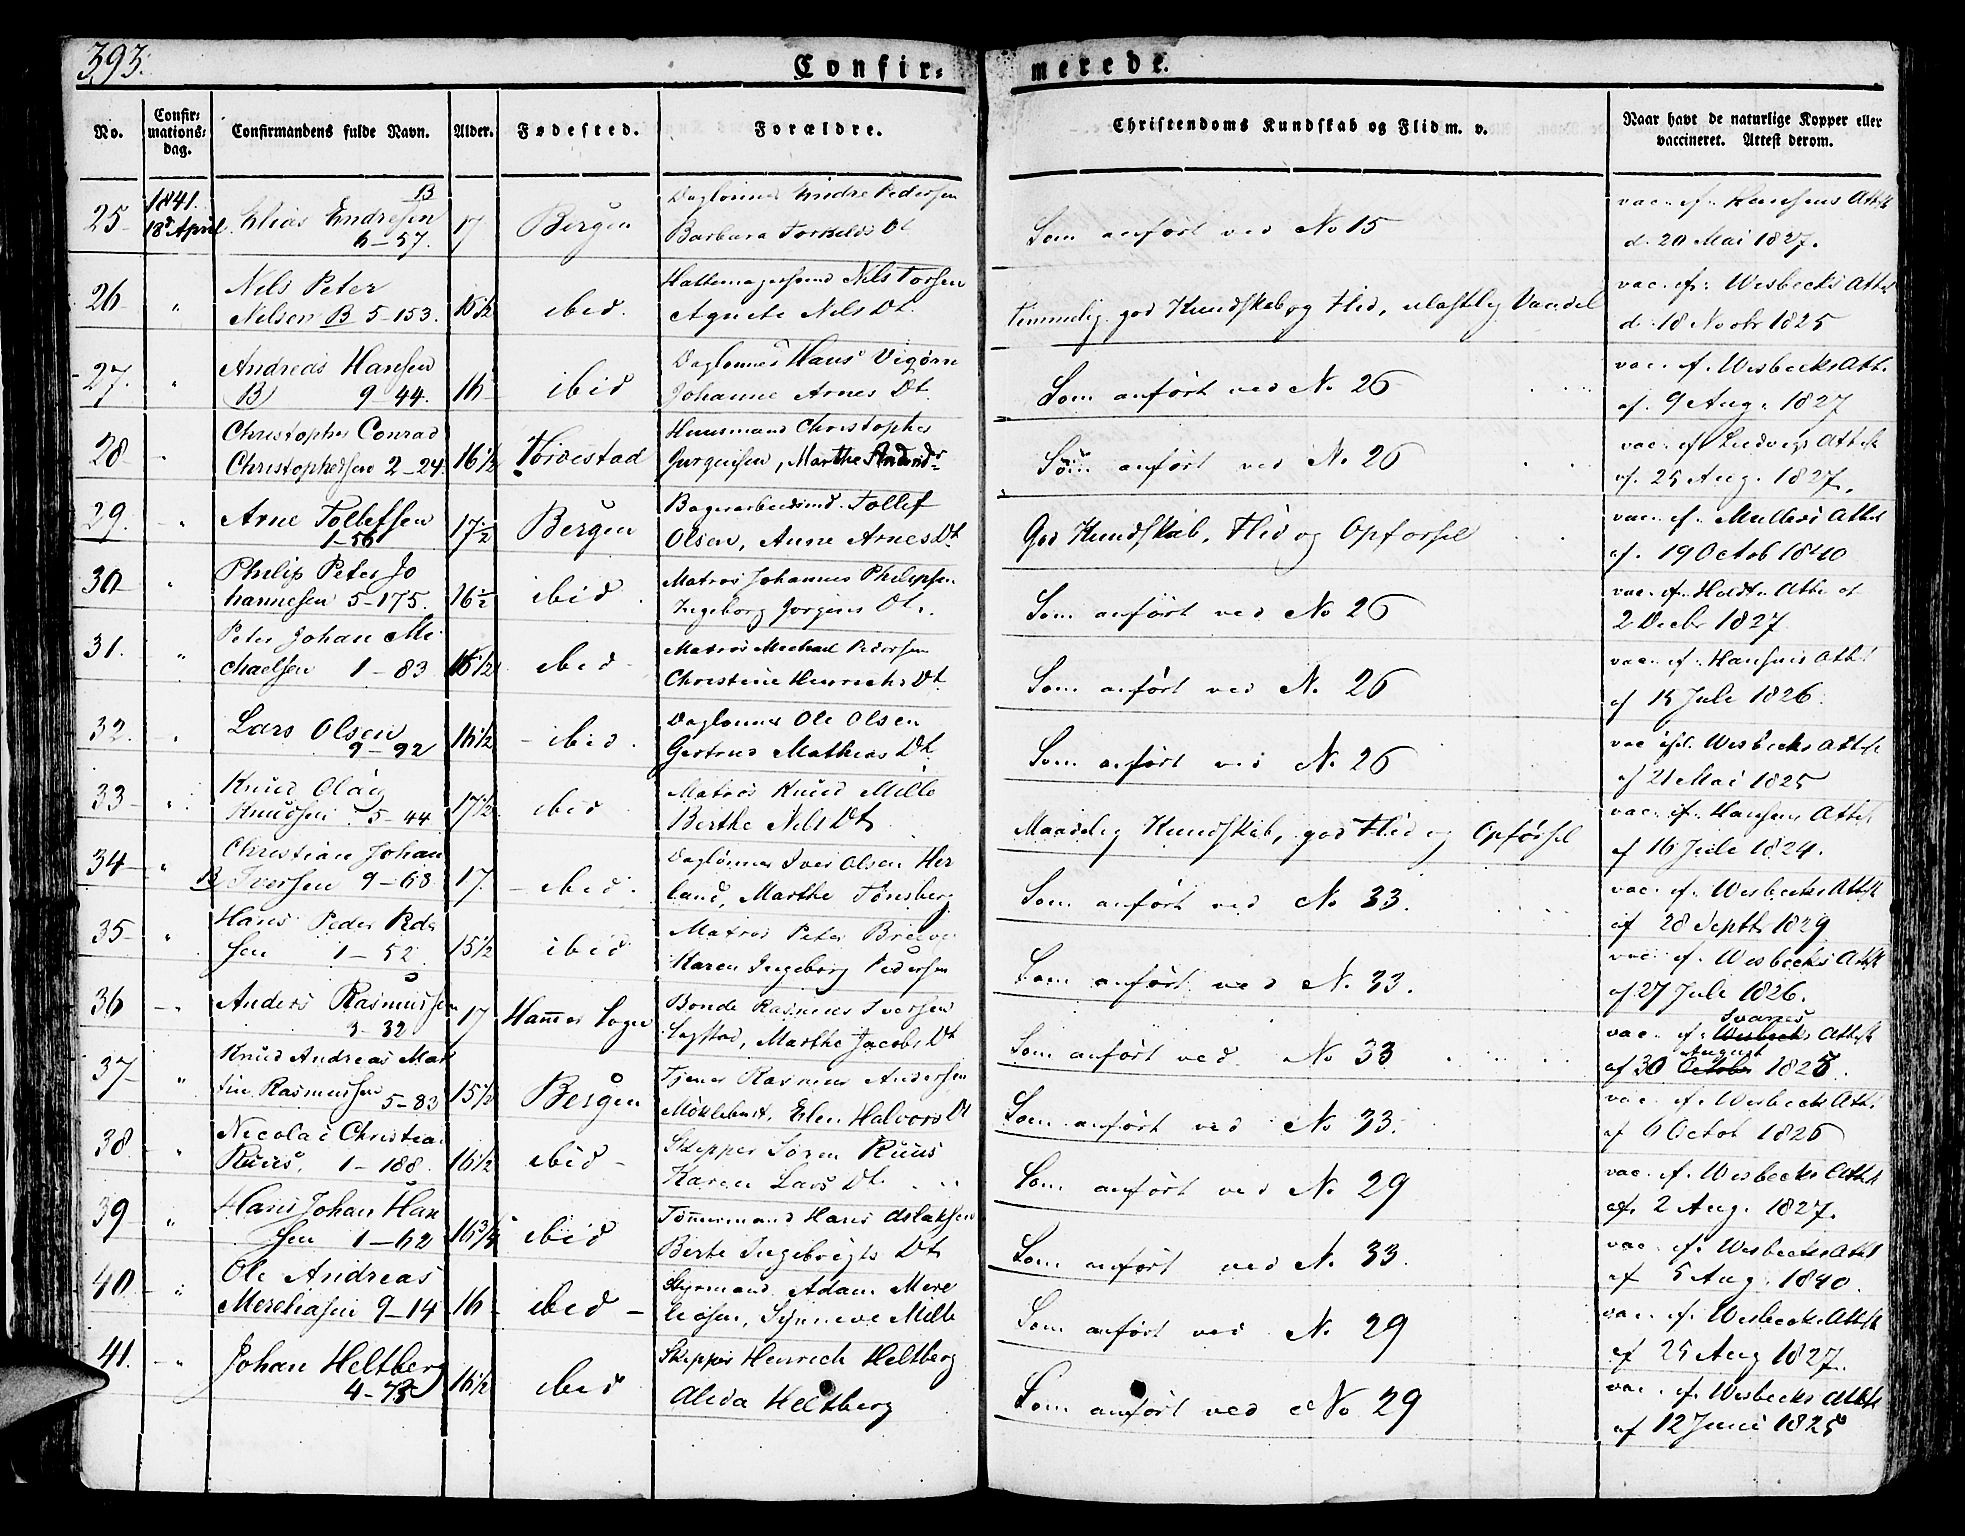 393.
Confir-
merede.
No.
Confir-
mations-
dag.
Confirmandens fulde Navn.
Alder.
Fødested.
Forældre.
Christendoms Kundskab og Flid m. v.
Naar havt de naturlige Kopper eller
vaccineret. Attest derom.
25
1841.
18 April
Elias Endresen
B
6-57.
17
Bergen
Daglønner Endre Pedersen
Barbara Torkelds Dt
Som anført ved No 15
vac. ef. Hansens Attest
d. 20 Mai 1827.
26
"
Nils Peter
Nilsen B 5-153.
ibid.
Hattemagersvend Nils
Agnete Nels Dt.
Temmelig god Kundskab og Flid, ulastelig Vandel
vac. ef. Wesbecks Attest
d. 18 Novbr 1825
27.
"
Andreas Hansen
B 9-44.
16
ibid
Daglønner Hans
Johanne Arnes Dt.
Som anført ved No. 26
vac. ef. Wesbecks Att.
af. 9 Aug. 1827
28
"
Christopher Conrad
Christophersen 2-24.
16 1/2
Torvestad
Huusmand Christopher
Jørgensen, Marthe
Som anført ved No. 26
vac. ef. Ludvigs Attest
af. 25 Aug. 1827.
29.
"
Arne Tollefsen
1-56
17 1/2
Bergen
Tollef
Olsen, Anne Arnes Dt.
God Kundskab, Flid og Opførsel
vac. ef. Mullers Attest
af. 19 Octob 1840
30
"
Philip Peter Jo
hannesen 5-175.
16 1/2
ibid
Matros Johannes Philipsen
Ingeborg Jørgens Dt.
Som anført ved No 26
vac. ef. Att. af
2 Decbr 1827
31.
"
Peter Johan Mi
chaelsen 1-83
ibid
Matros Michael Pedersen
Christine Henrichs Dt.
Som anført ved No. 26
vac. ef. Hansens Att.
af 15 Juli 1826.
32.
"
Lars Olsen
9-92
16 1/2
ibid.
Daglønner Ole Olsen
Gertrud Mathias Dt.
Som anført ved No. 26
vac ef. Wesbecks Attest
af 21 Mai 1825
33
"
Knud Olai
Knudsen 5-44
17 1/2
ibid
Matros Knud Mille
Berthe Nils Dt
Maadelig Kundskab, god Flid og Opførsel
vac. ef. Hansens Attest
af 16 Juli 1824.
34
"
Christian Johan
B Iversen 9-68
17.
ibid.
Daglønner Iver Olsen Her
land, Marthe Tønsberg
Som anført ved No 33.
vac. ef. Wesbecks Attest
af 28 Septb 1829
35
"
Hans Peder Peder
sen 1-52
15 1/2
ibid
Matros Peter
Karen Ingeborg Pedersen
Som anført ved No. 33.
vac. ef. Wesbecks Attest
af 27 Juli 1826.
36
"
Anders Rasmussen
3-32
17
Hammer Sogn
Bonde Rasmus Iversen
Marthe Jacobs Dt
Som anført ved No 33
Svanes
vac. ef. Wesbecks Attest
August
af 30 October 1825.
37
"
Knud Andreas Mar
tin Rasmussen 5-83
15 1/2
Bergen
Tjener Rasmus Andersen
Möklebust, Elen Halvors Dt
Som anført ved No 33.
vac. ef. Wesbecks Att.
af 6 Octob 1826
38
"
Nicolai Christian
Ruus, 1-188.
16 1/2
ibid
Skipper Søren Ruus
Karen Lars Dt.
Som anført ved No. 29
vac. ef. Wesbecks Attest
af. 2 Aug. 1827.
39
"
Hans Johan Han
sen 1-62
16 3/4
ibid
Tømmermand Hans Aslaksen
Berte Ingebrigts Dt
Som anført ved No. 33.
vac. ef. Wesbecks Attest
af 5 Aug. 1840.
40
"
Ole Andreas
9-14
16
ibid
Styrmand Adam
Synneve Mille
Som anført ved No. 29
vac. ef. Wesbecks Attest
af 25 Aug 1827.
41.
"
Johan Heltberg
4-73
16 1/2
ibid
Skipper Henrich Heltberg
Alida Heltberg
Som anført ved No 29
vac. ef. Wesbecks Attest
af 12 Juni 1825